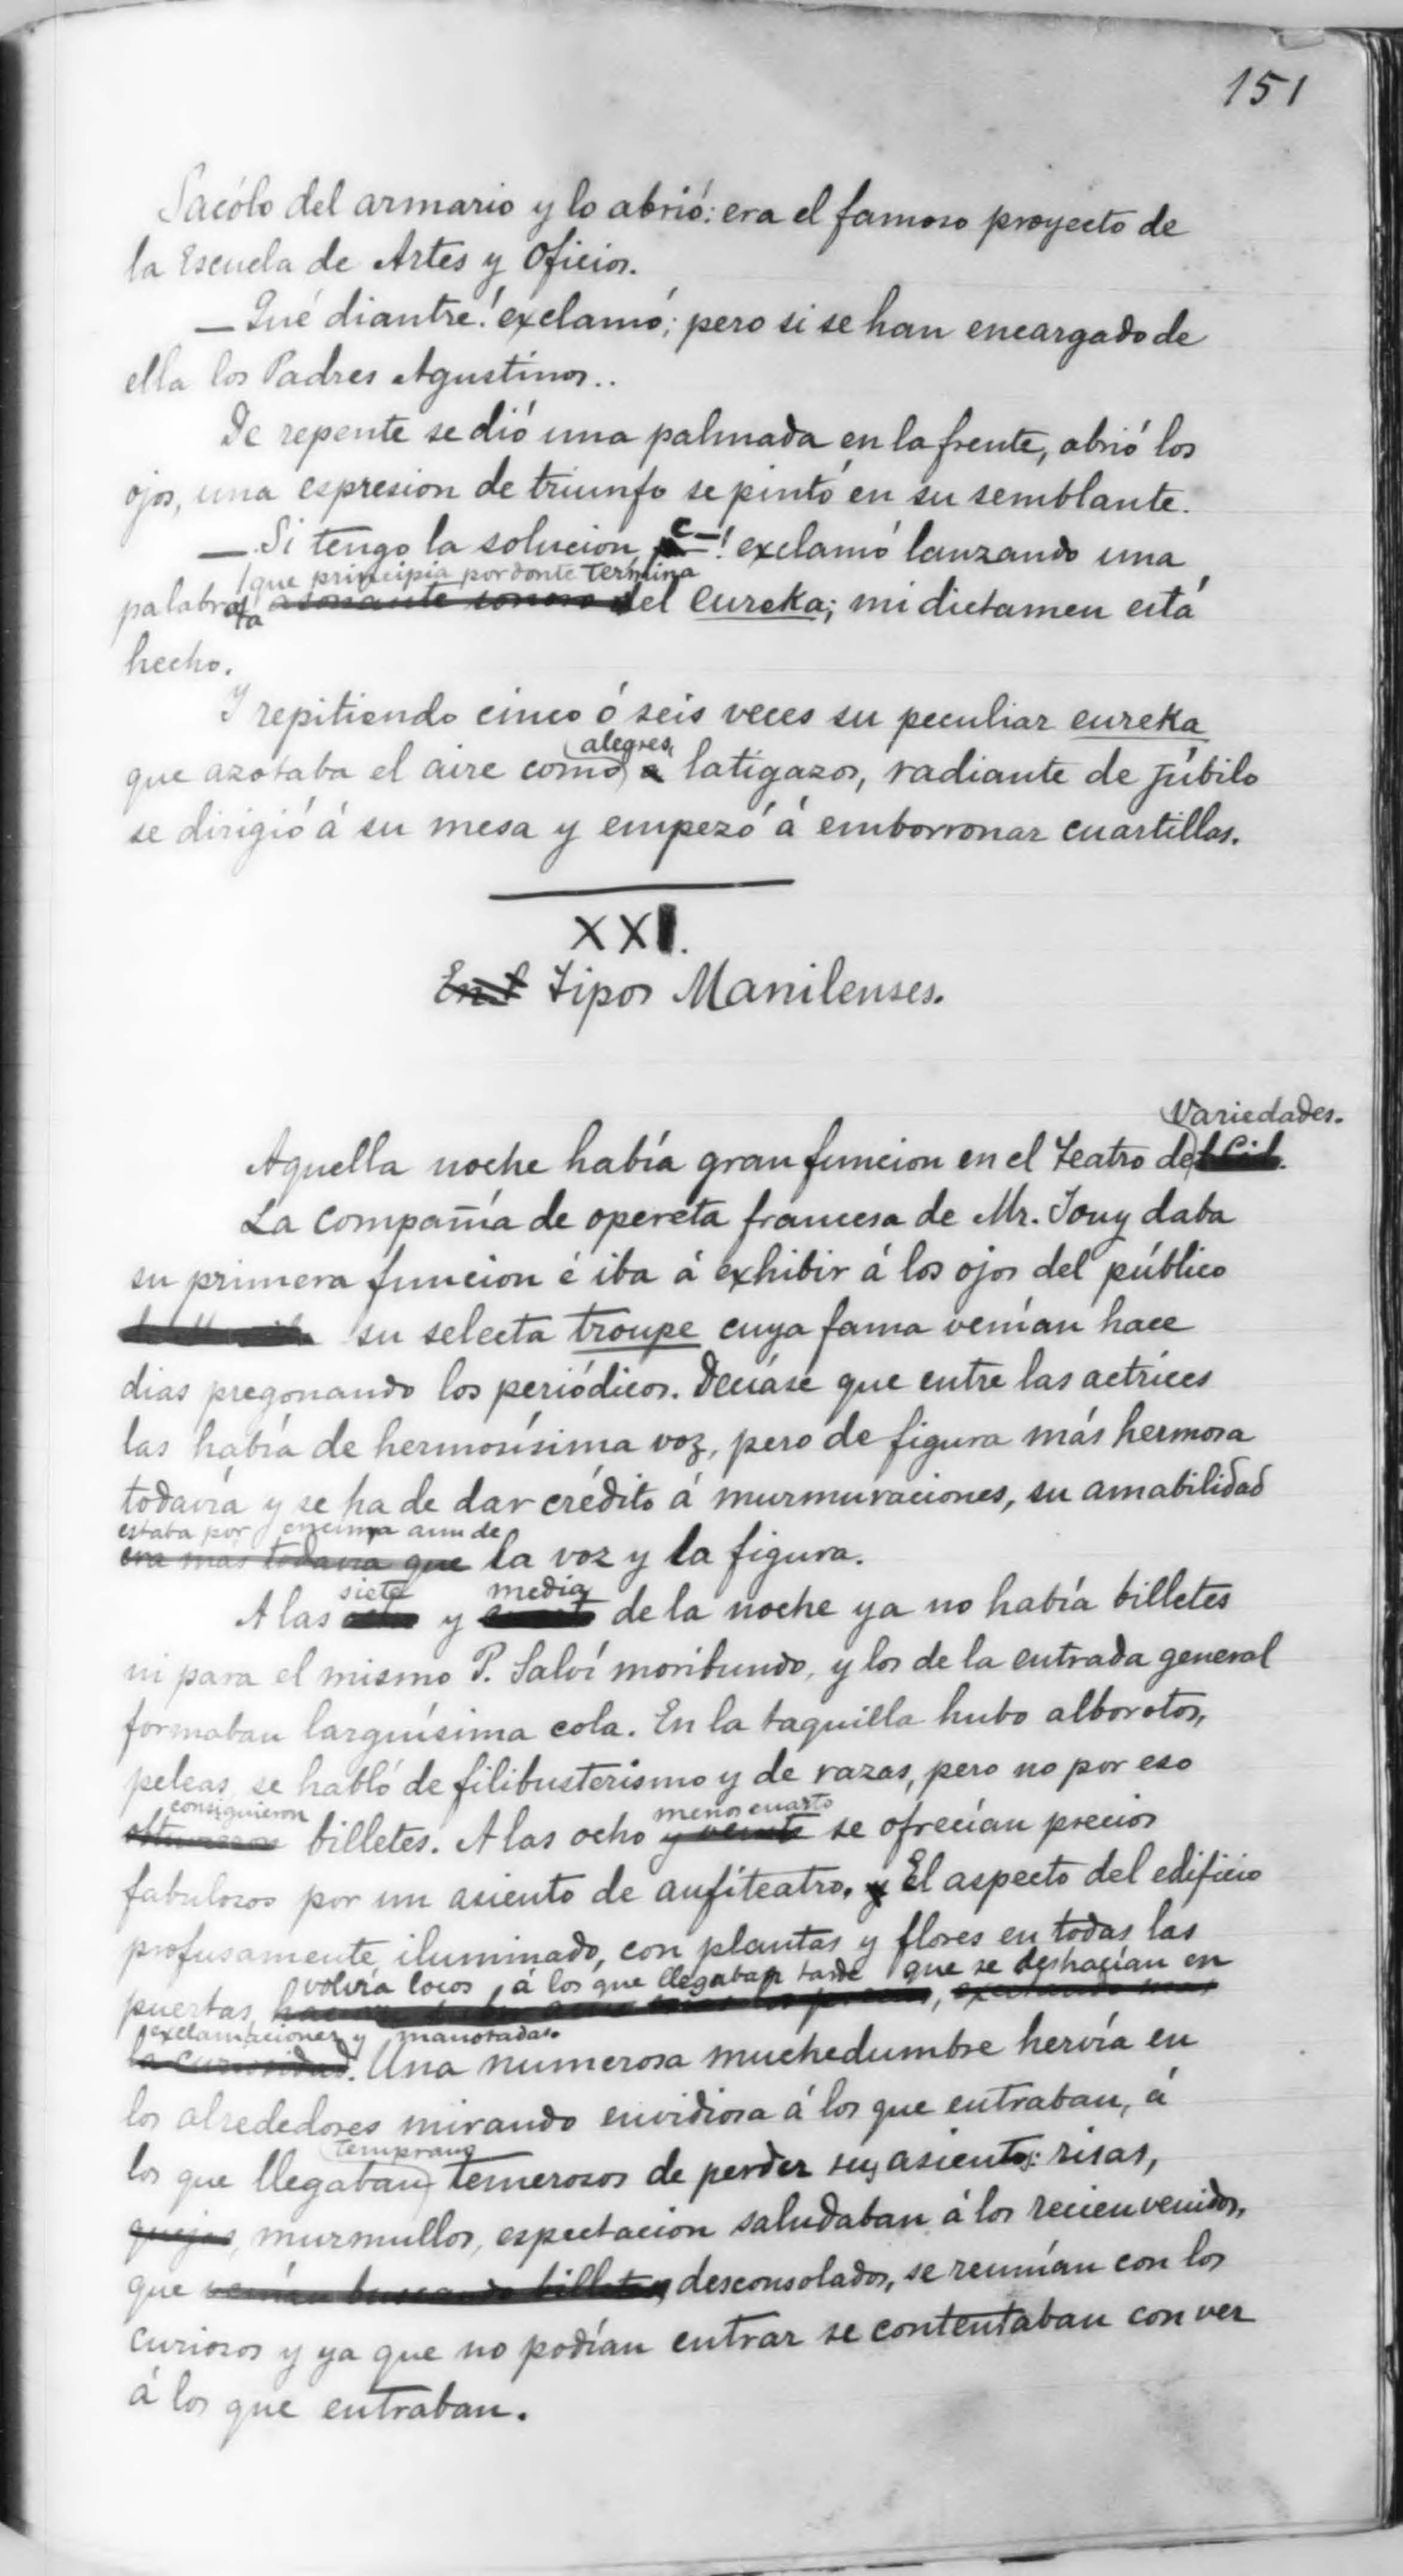 151
Sacólo del armario y lo abrió: era el famoso proyecto de
la Escuela de Artes y Oficios.
— Qué diantre! exclamó; pero si se han encargado de
ella los Padres Agustinos..
De repente se dió una palmada en la frente, abrió los
ojos, una espresion de triunfo se pintó en su semblante.
— Si tengo la solucion, c—! exclamó lanzando una
que principia por donte termina
palabrota asonante sonoro del Eureka; mi dictamen está
hecho.
Y repitiendo cinco ó seis veces su peculiar eureka
alegres
que azotaba el aire como latigazos, radiante de júbilo
se dirigió á su mesa y empezó á emborronar cuartillas.
XXI.
En l Tipos Manilenses.
Variedades.
Aquella noche había gran funcion en el Teatro del Cil.
La compañía de opereta francesa de Mr. Jouy daba
su primera funcion é iba á exhibir á los ojos del público
su selecta troupe cuya fama venían hace
dias pregonando los periódicos. Decíase que entre las actrices
las había de hermosísima voz, pero de figura más hermosa
todavía y se ha de dar crédito á murmuraciones, su amabilidad
estaba por encima aun de
era más todavía que la voz y la figura.
siete media
A las y de la noche ya no había billetes
ni para el mismo P. Salví moribundo, y los de la entrada general
formaban larguísima cola. En la taquilla hubo alborotos,
peleas, se habló de filibusterismo y de razas, pero no por eso
consiguieron menos cuarto
obtuvieron billetes. A las ocho y veinte se ofrecían precios
fabulosos por un asiento de anfiteatro. y El aspecto del edificio
profusamente iluminado, con plantas y flores en todas las
volvía locos á los que llegaban tarde que se deshacían en
puertas,
exclamaciones y manotadas.
la curiosidad. Una numerosa muchedumbre hervía en
los alrededores mirando envidiosa á los que entraban, á
temprano
los que llegaban temerosos de perder sus asientos: risas,
quejas, murmullos, espectacion saludaban á los recien venidos,
que venían buscando billetes desconsolados, se reunían con los
curiosos y ya que no podían entrar se contentaban con ver
á los que entraban.